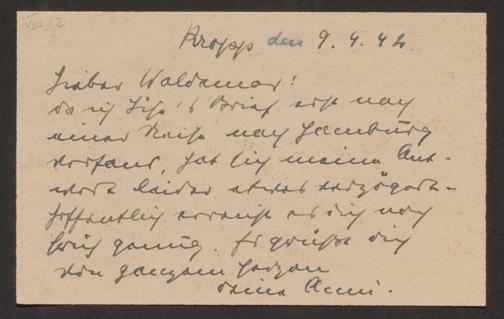 Kropp den 9.4.42.
Lieber Waldemar!
da ich Brief erst nach
einer Reise nach Hamburg
vorfand, hat sich meine Ant-
wort leider etwas verzögert -
hoffentlich erreicht es dich noch
früh genug. Es grüßt dich
von ganzem Herzen
deine Anni.